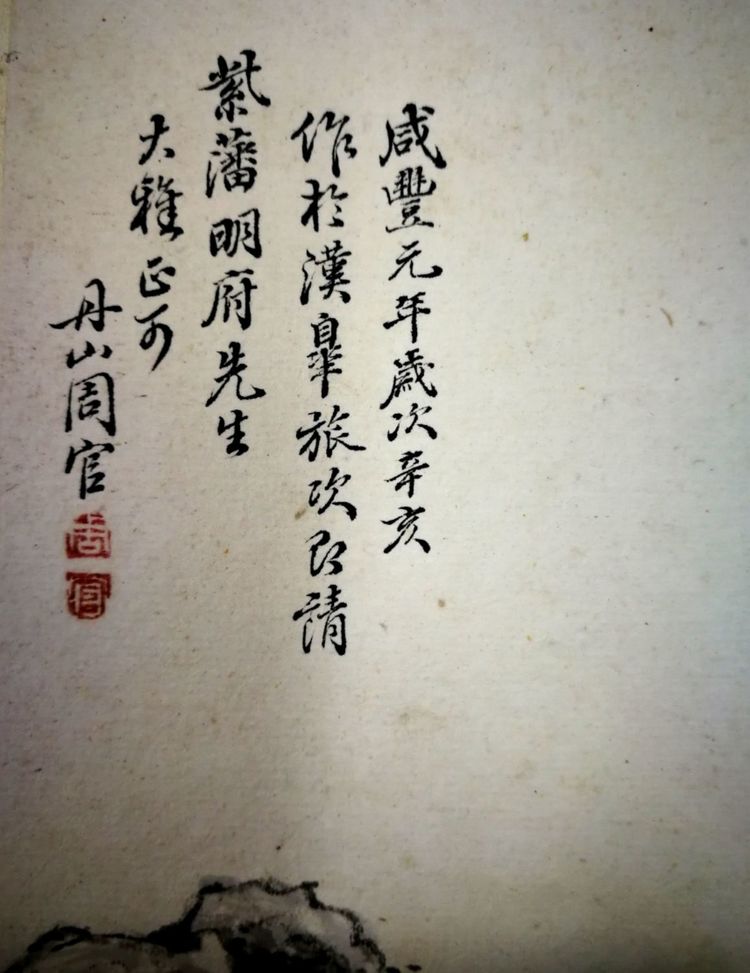 咸豐元年歲次辛亥
作於漢皐旅次即請
紫藩明府先生
大雅正可
丹山周官
周
官